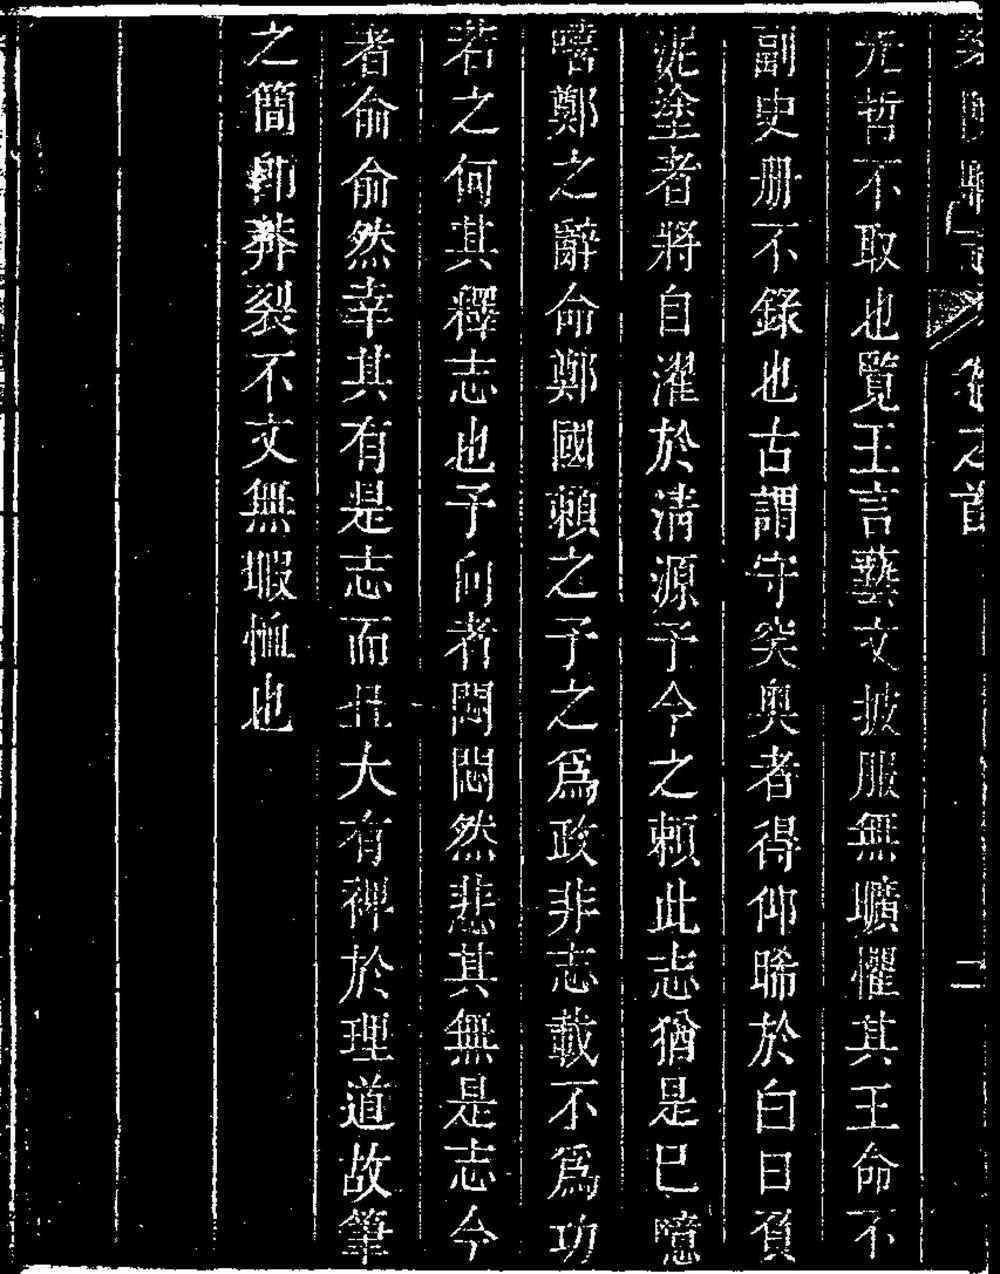 卷之首
二
尤哲不取也覽王言藝文披服無曠懼其王命不
副史册不錄也古謂守突奧者得仰晞於白日負
泥塗者將自濯於清源予今之賴此志猶是已噫
嘻鄭之辭命鄭國賴之予之爲政非志載不爲功
若之何其釋志也予向者悶悶然悲其無是志今
者俞俞然幸其有是志而且大有裨於理道故筆
之簡端莽裂不文無暇恤也